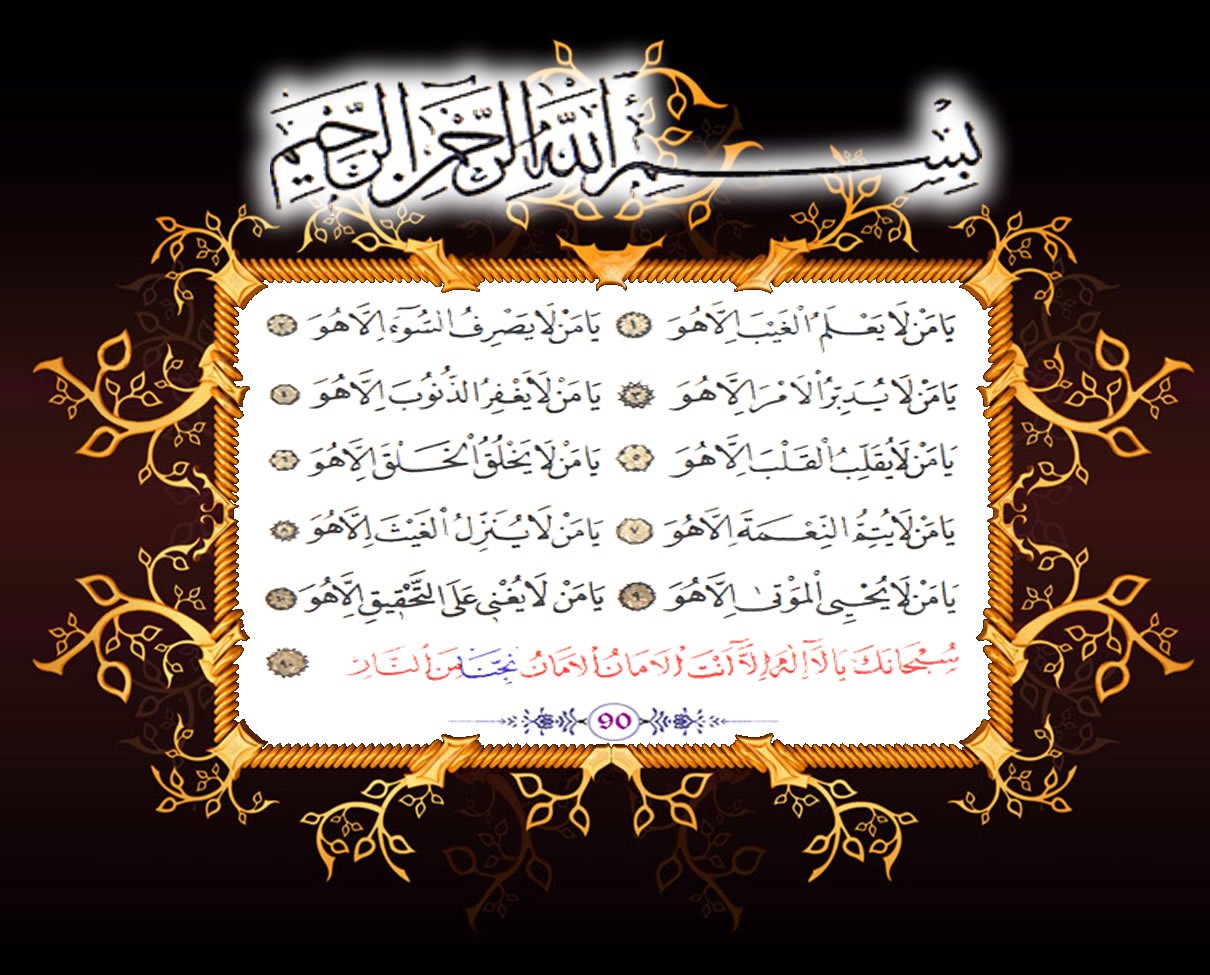 بِسْمِ اللَّهِ الرَّحْمَنِ الرَّحِيمِ
يَا مَنْ لَا يَعْلَمُ الْغَيْبَ اِلَّا هُوَ ١ يَا مَنْ لَا يَصْرِفُ السُّوٓءَ اِلَّا هُوَ ٢
يَا مَنْ لَا يُدَبِّرُ الْاَمْرَ اِلَّا هُوَ ٣ يَا مَنْ لَا يَغْفِرُ الذُّنُوبَ اِلَّا هُوَ ٤
يَا مَنْ لَا يُقَلِّبُ الْقَلْبَ اِلَّا هُوَ ٥ يَا مَنْ لَا يَخْلُقُ الْخَلْقَ اِلَّا هُوَ ٦
يَا مَنْ لَا يُتِمُّ النِّعْمَةَ اِلَّا هُوَ ٧ يَا مَنْ لَا يُنَزِّلُ الْغَيْثَ اِلَّا هُوَ ٨
يَا مَنْ لَا يُحْيِى الْمَوْتٰى اِلَّا هُوَ ٩ يَا مَنْ لَا يُغْنِى عَلَى التَّحْقِيقِ اِلَّا هُوَ ١٠
سُبْحَانَكَ يَا لَآ اِلٰهَ اِلَّآ اَنْتَ الْاَمَانُ الْاَمَانُ نَجِّنَا مِنَ النَّارِ ٩٠
90